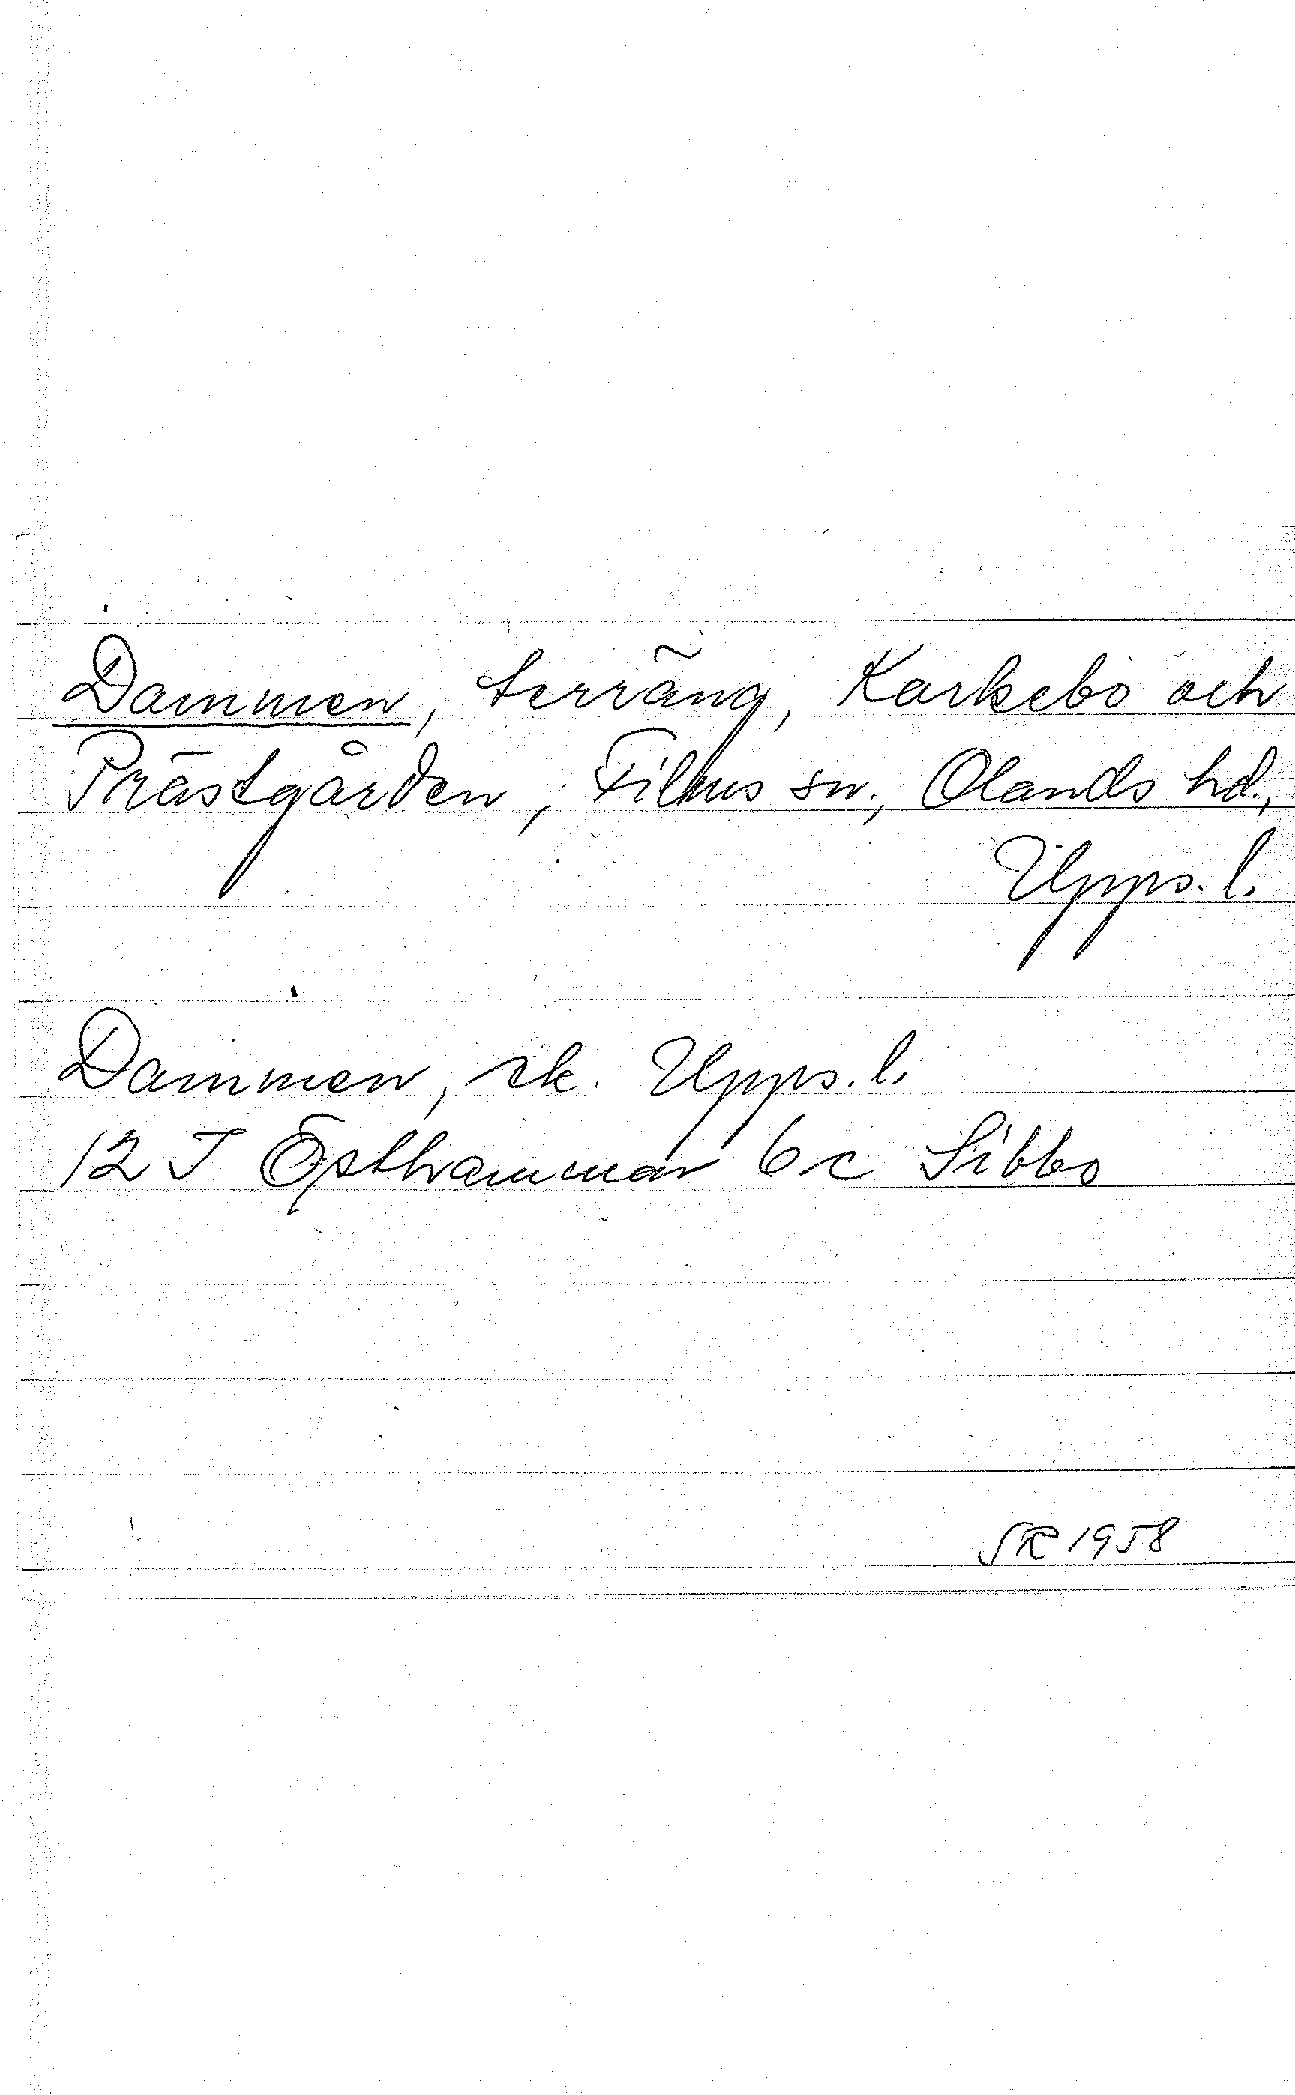 Dammen, terräng, Karkebo och
Prästgården, Films sn., Olands hd.,
Upps. l.
Dammen, ek. Upps. l.
12 I Östhammar 6 c Sibbo
SR 1958